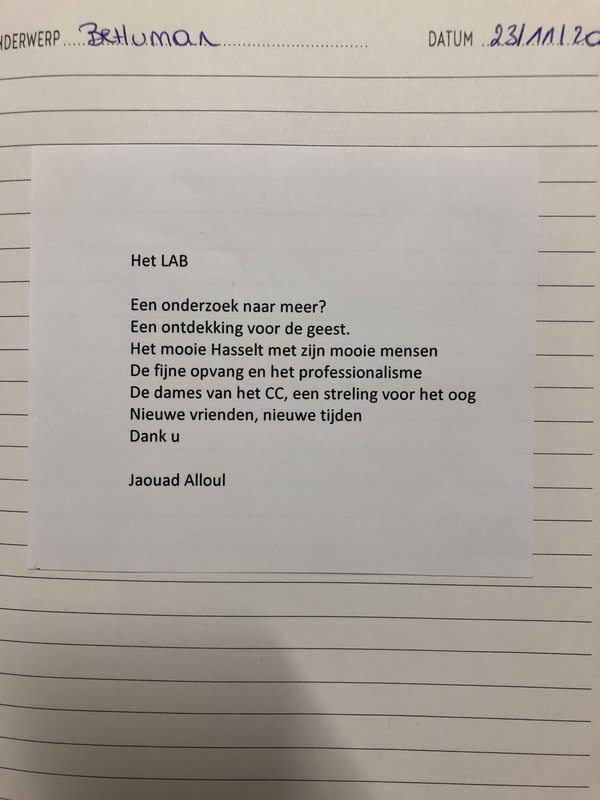 NDERWERP BEHUMAN DATUM 23/11/20
Het LAB
Een onderzoek naar meer?
Een ontdekking voor de geest.
Het mooie Hasselt met zijn mooie mensen
De fijne opvang en het professionalisme
De dames van het CC, een streling voor het oog
Nieuwe vrienden, nieuwe tijden
Dank u
Jaouad Alloul